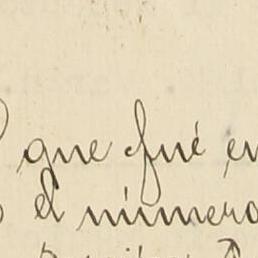 que fué en
el número